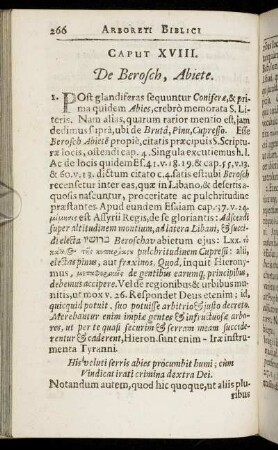 266 ARBORETI BIBLICI
CAPUT XVIII.
De Berosch, Abiete.
1. POst glandiferas sequuntur Coniferæ, & pri-
ma quidem Abies, crebrò memorata S. Li-
teris. Nam alias, quarum rarior mentio est, jam
dedimus suprà, ubi de Brutâ, Pinu, Cupresso. Esse
Berosch Abietē propiè, citatis præcipuis S. Scriptu-
ræ locis, ostendi cap. 4. Singula excutiemus h. l.
Ac de locis quidem Es. 41. v. 18. 19. & cap. 55. v. 13.
& 60. v. 13. dictum citato c. 4. satis est: ubi Berosch
recensetur inter eas, quæ in Libano, & desertis a-
quosis nascuntur, proceritate ac pulchritudine
præstantes. Apud eundem Esaiam cap. 37. v. 24.
est Assyrii Regis, de se gloriantis: Adscendi
super altitudinem montium, ad latera Libani, & succi-
di electa ברושיו Beroschav abietum ejus: Lxx.
pulchritudinem Cupressi: alii,
electas pinus, aut fraxinos. Quod, inquit Hierony-
mus, de gentibus earumq; principibus,
debemus accipere. Vel de regionibus & urbibus mu-
nitis, ut mox v. 26. Respondet Deus etenim; id,
quicquid potuit, suo potuisse arbitrio, & justo decreto.
Atterebantur enim impiæ gentes & infructuosæ arbo-
res, ut per te quasi securim & serram meam succide-
rentur & caderent, Hieron. sunt enim - Iræ instru-
menta Tyranni.
His veluti ferris abies procumbit humi; cùm
Vindicat irati crimina dextra Dei.
Notandum autem, quod hic quoque, ut aliis plu-
ribus